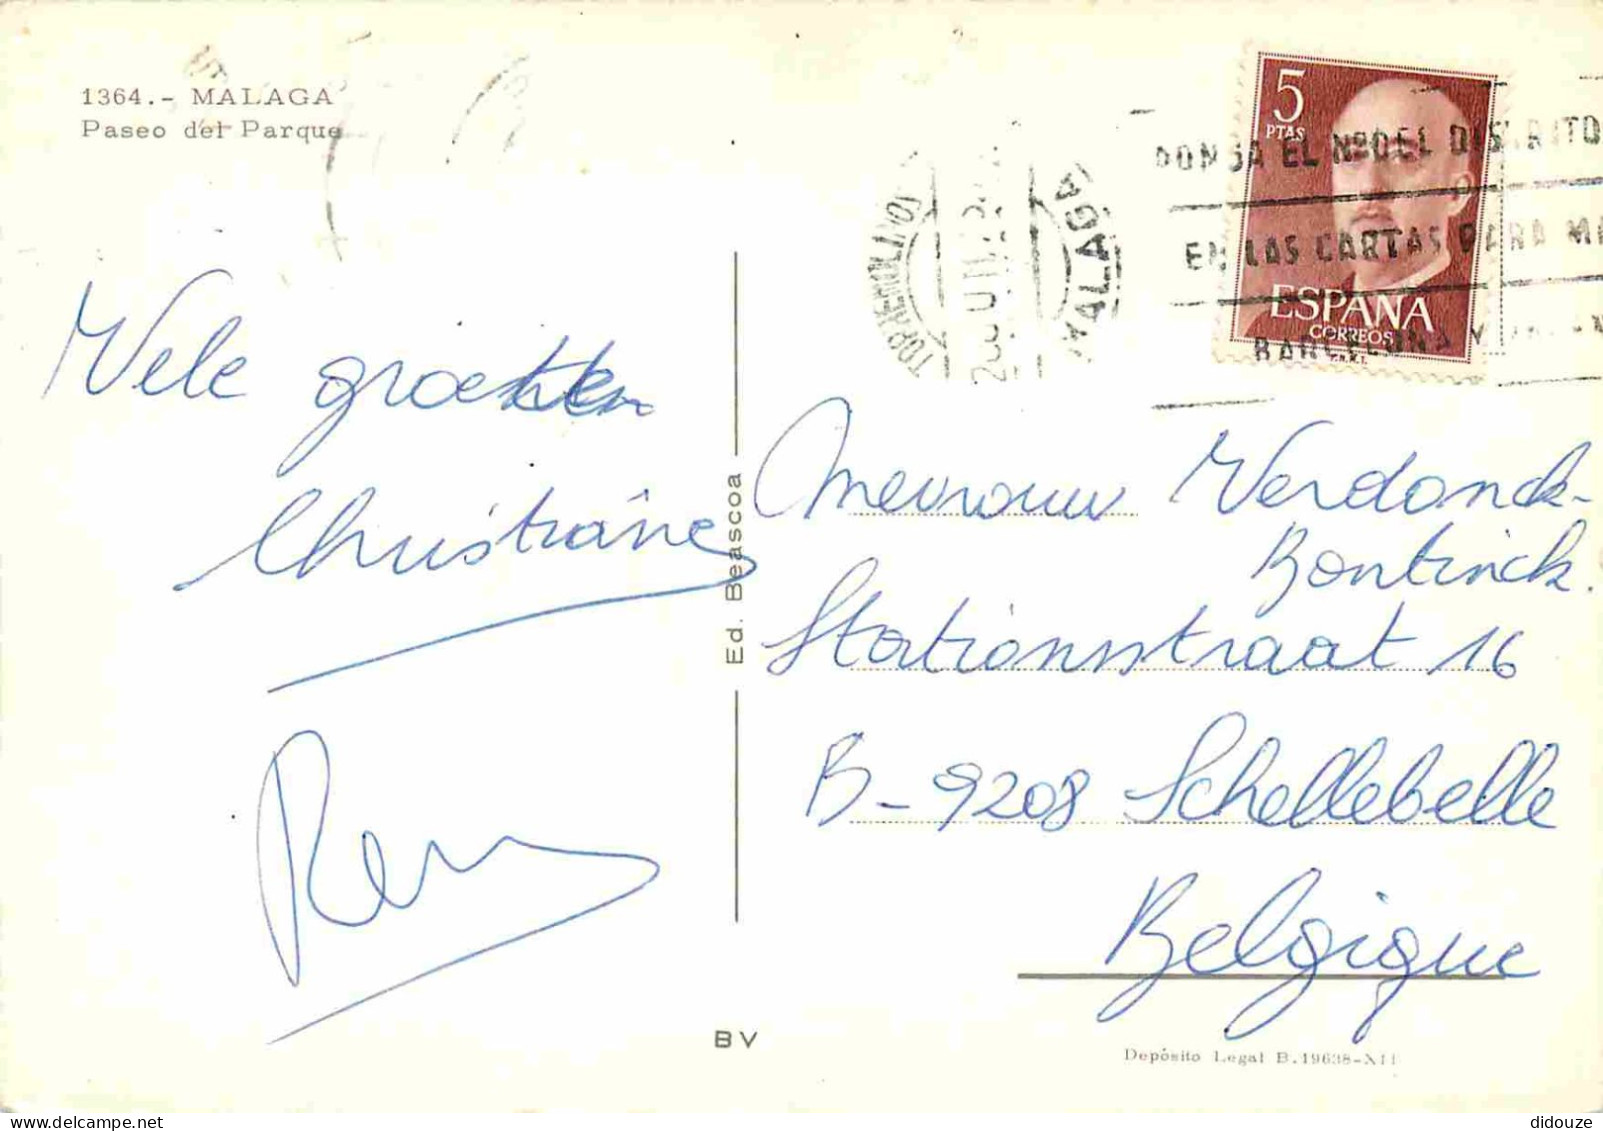 1364.- MALAGA
Paseo del Parque
Vele groeten
Christiane
Ed. Beascoa
BV
TORREMOLINOS
(MALAGA)
5
PTAS
ESPAÑA
CORREOS
PONGA EL Nº DEL DISTRITO
EN LAS CARTAS PARA MA
BARCELONA Y
Mevrouw Verdonck-
Bontinck.
Stationsstraat 16
B-9208 Schellebelle
Belgique
Depósito Legal B.19638-XII
didouze